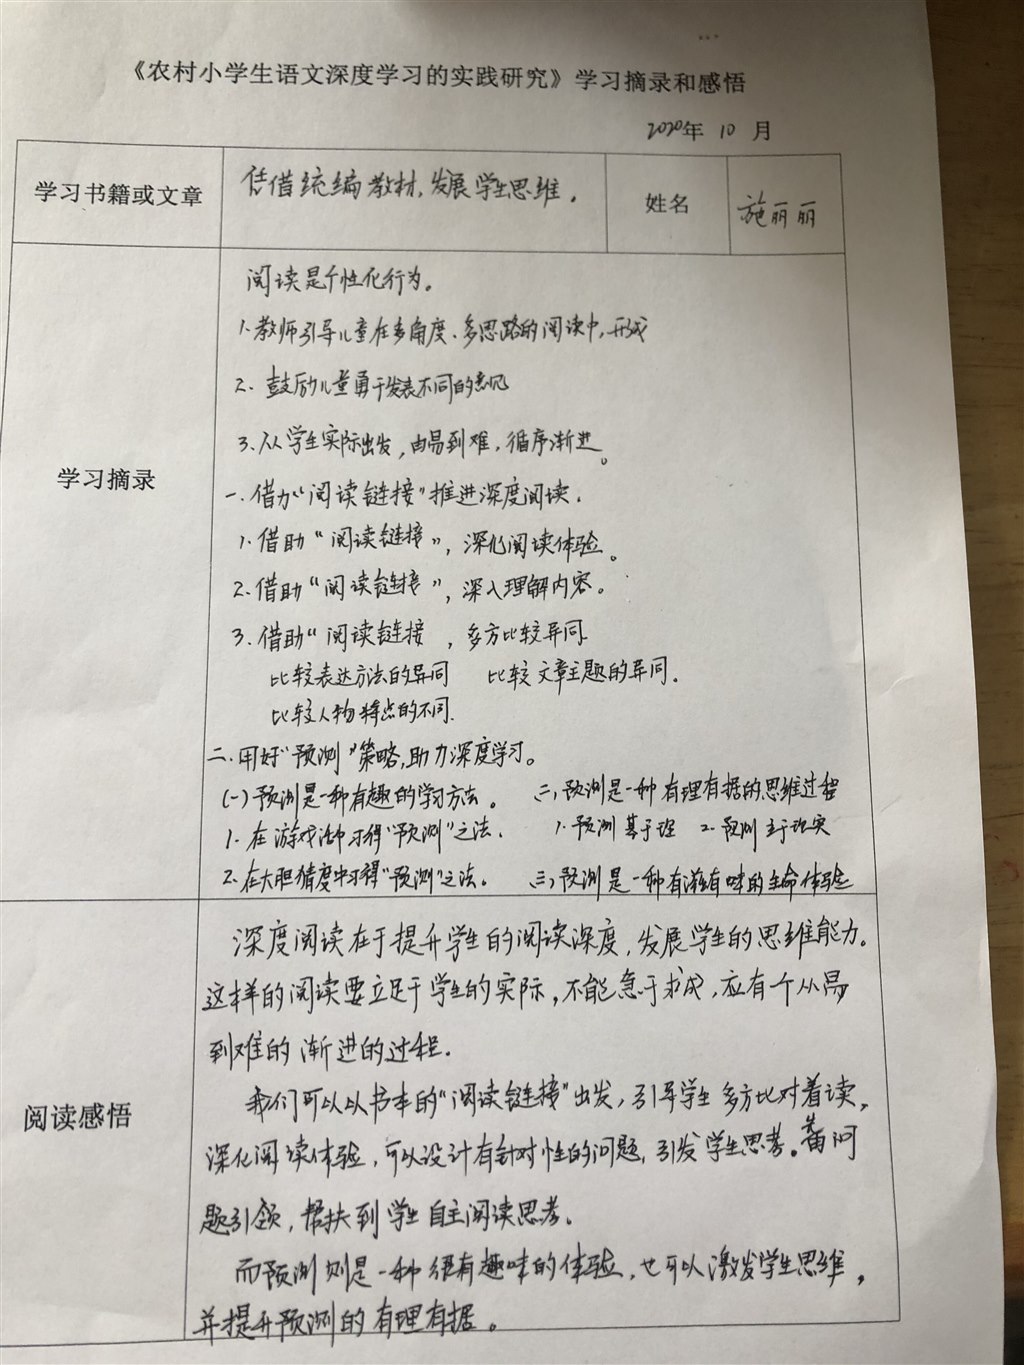 《农村小学生语文深度学习的实践研究》学习摘录和感悟
2020年 10 月
学习书籍或文章 凭借统编教材,发展学生思维。 姓名 施丽丽
学习摘录
阅读是个性化行为。
1.教师引导儿童在多角度、多思路的阅读中,形成
2. 鼓励儿童勇于发表不同的意见
3.从学生实际出发,由易到难,循序渐进。
一.借力“阅读链接”推进深度阅读.
1.借助“阅读链接”,深化阅读体验。
2.借助“阅读链接”,深入理解内容。
3.借助“阅读链接 ,多方比较异同
比较表达方法的异同 比较文章主题的异同.
比较人物特点的不同.
二.用好“预测”策略,助力深度学习。
(一)预测是一种有趣的学习方法。 二,预测是一种有理有据的思维过程
1.在游戏活中习得“预测”之法. 1.预测基于 2.预测 于现实
2.在大胆猜度中习得“预测”之法。 三,预测是一种有滋有味的生命体验
阅读感悟
深度阅读在于提升学生的阅读深度,发展学生的思维能力。
这样的阅读要立足于学生的实际,不能急于求成,应有个从易
到难的渐进的过程.
我们可以以书本的“阅读链接”出发,引导学生多方比对着读,
深化阅读体验,可以设计有针对性的问题,引发学生思考。 问
题引领,帮扶到学生自主阅读思考。
而预测则是一种很有趣味的体验,也可以激发学生思维,
并提升预测的有理有据。